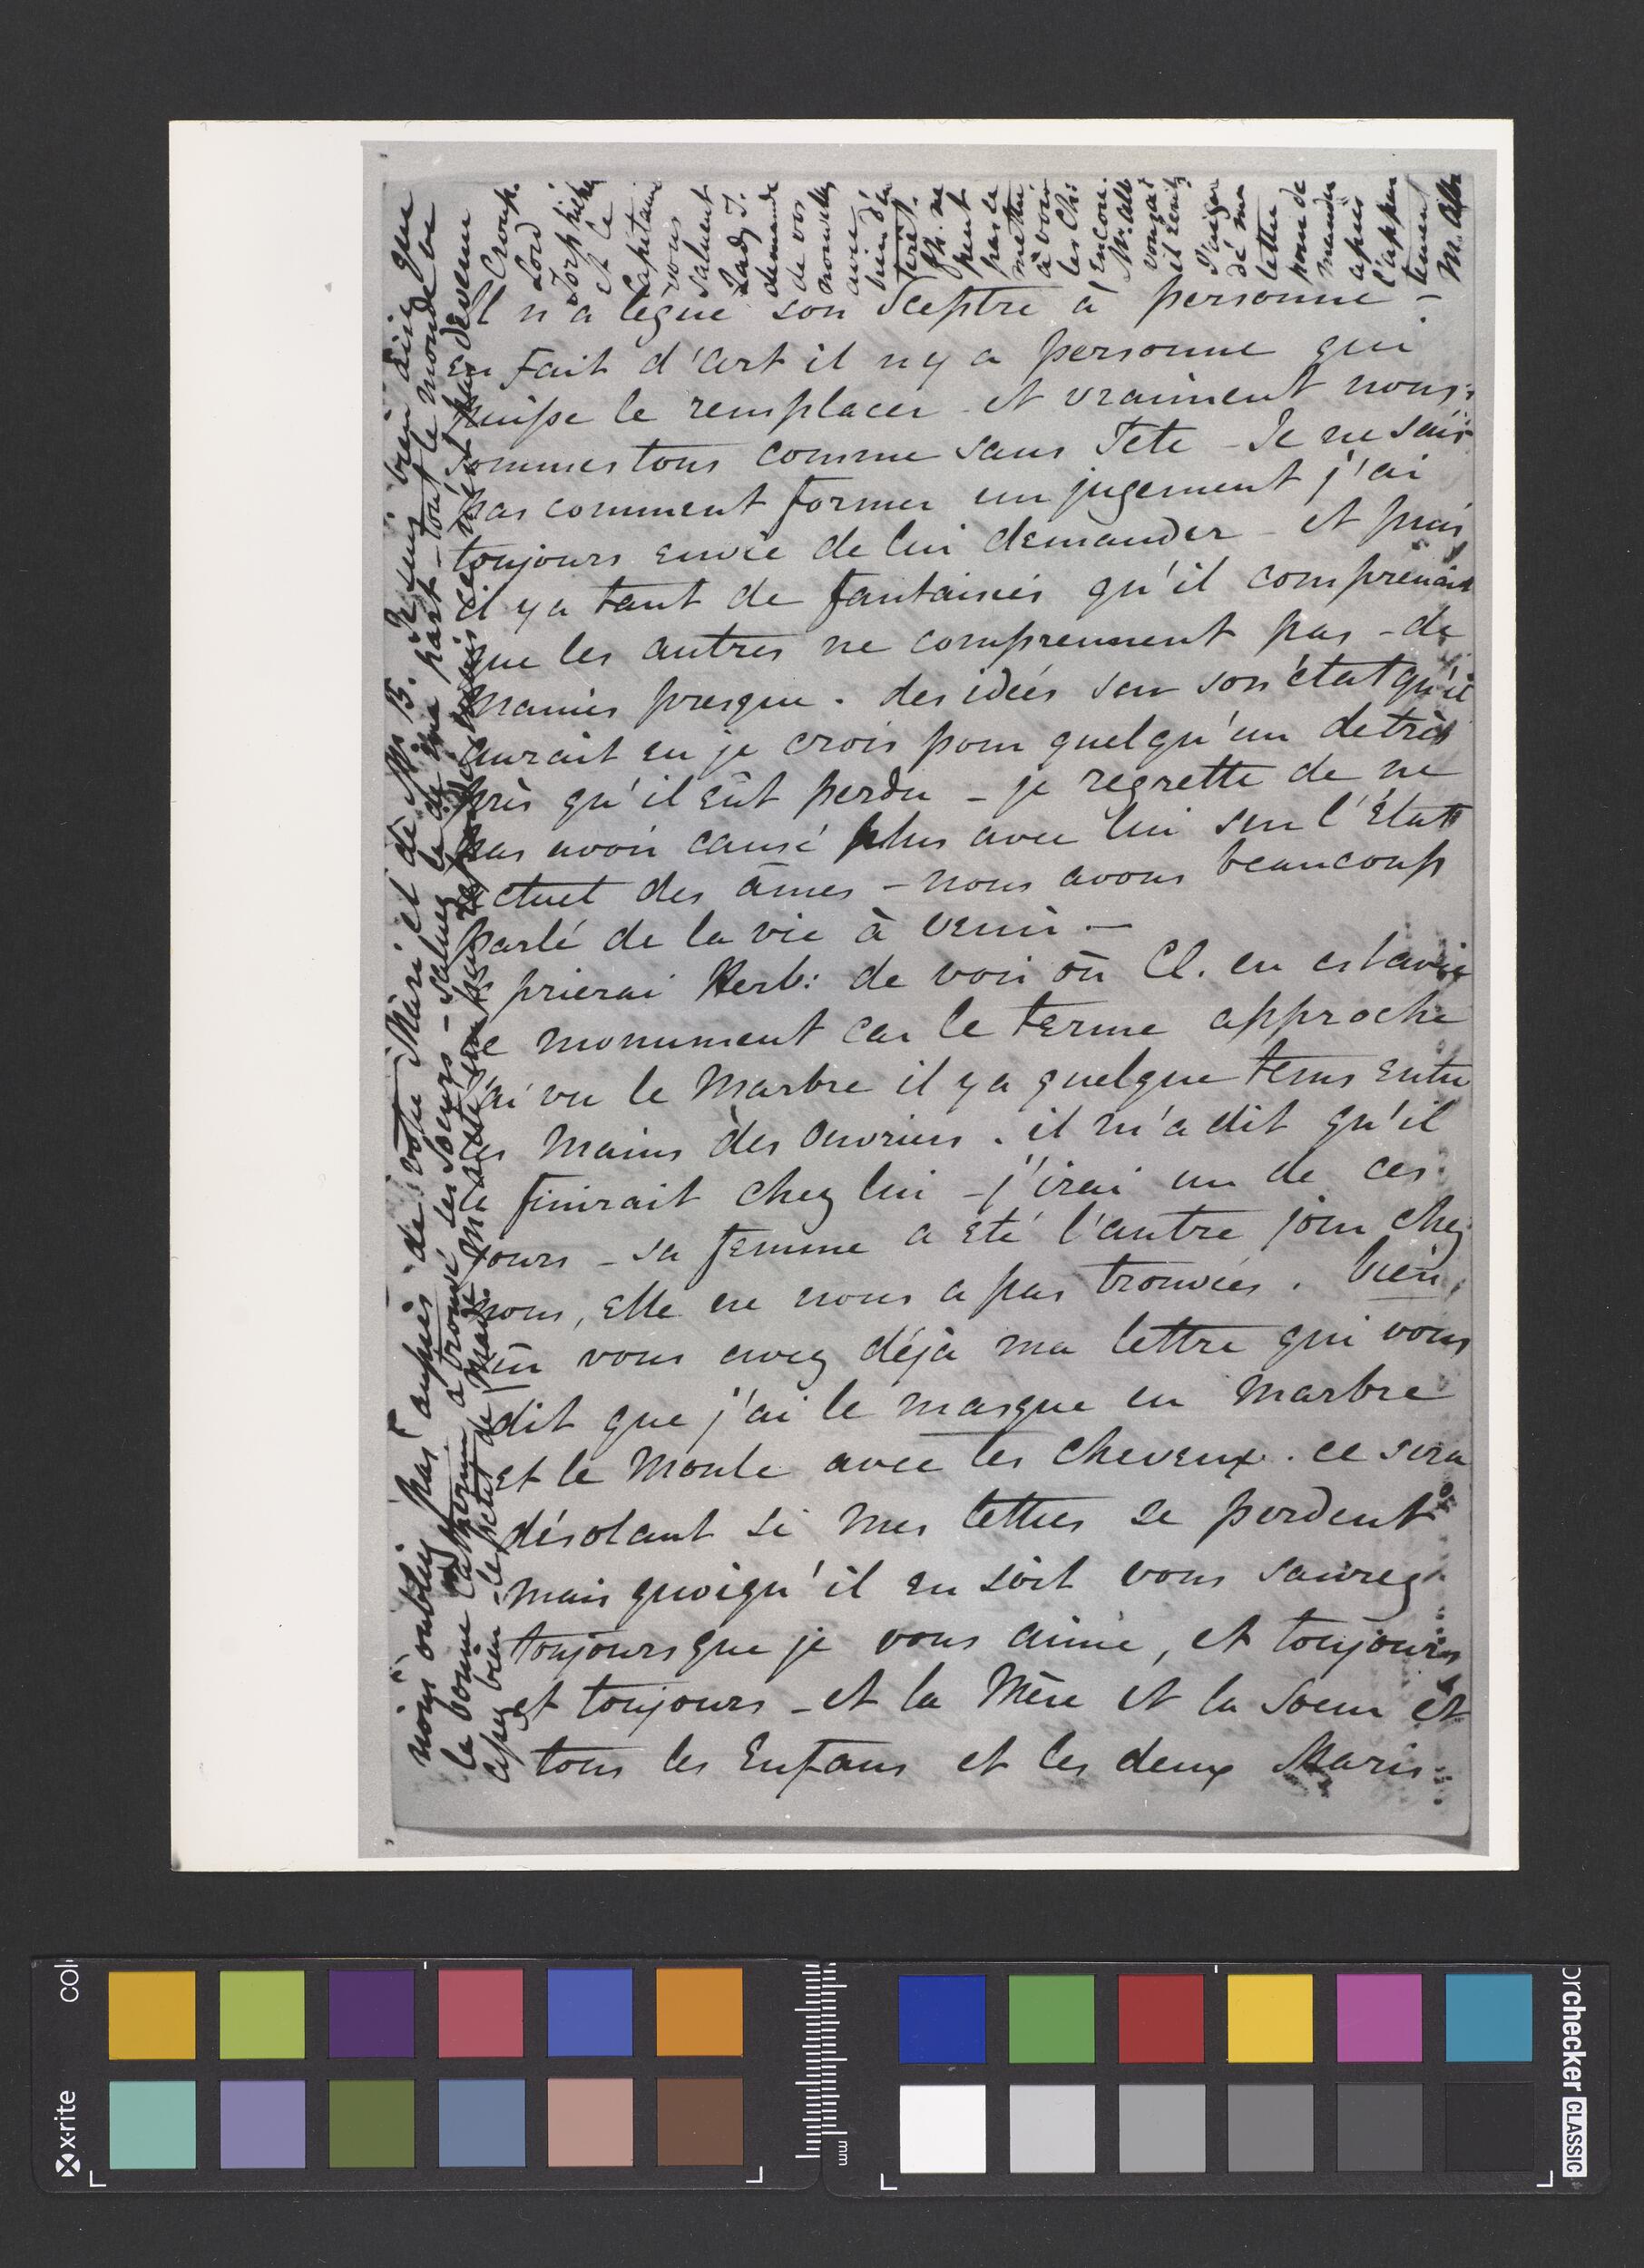 Il n'a légué son Sceptre à personne –
en fait d'art il n'y a personne qui
puisse le remplacer – et vraiment nous
sommes tous comme sans Tete – Je ne sais
pas comment former un jugement j'ai
toujours envie de lui demander – et puis
il y a tant de fantaisies qu'il comprenait
que les autres ne comprennent pas – de
manies presque . des idées sur son état qu'il
aurait eu je crois pour quelqu'un de très
près qu'il eût perdu – je regrette de ne
pas avoir causé plus avec lui sur l'État
actuel des âmes – nous avons beaucoup
parlé de la vie à venir. –
prierai Herb: de voir où Cl. en est avec
le monument car le terme approche
j'ai vu le Marbre il y a quelque tems entre
les mains des Ouvriers . il m'a dit qu'il
le finirait chez lui – j'irai un de ces
jours – sa femme a été l'autre jour chez
nous, Elle ne nous a pas trouvées . bien
sûr vous avez déja ma lettre qui vous
dit que j'ai le masque en Marbre
et le Moule avec les cheveux . ce sera
désolant si mes lettres se perdent
mais quoiqu'il en soit vous saurez
toujours que je vous aime, et toujours
et toujours – et la Mère et la Soeur et
tous les Enfans et les deux Maris
nous oubliez pas auprès de votre Mari et de Mr B. Je suis bien aise que
la bonne a trouvé les soeurs – saluez la de ma part – tout le monde
assez bien – le petit de Made
Croup.
Lord
Torphichen
et le
Capitaine
vous
saluent
Lady T.
demande
de vos
nouvelles
avec
bien d'in
teret.
ne
peut
pas se
mettre
à voir
les Ch:
Encore.
Mr. Alb
lettre
pour de
mander
après
l'appar
tement
M. Alb
colo
x-rite
mm
orchecker CLASSIC